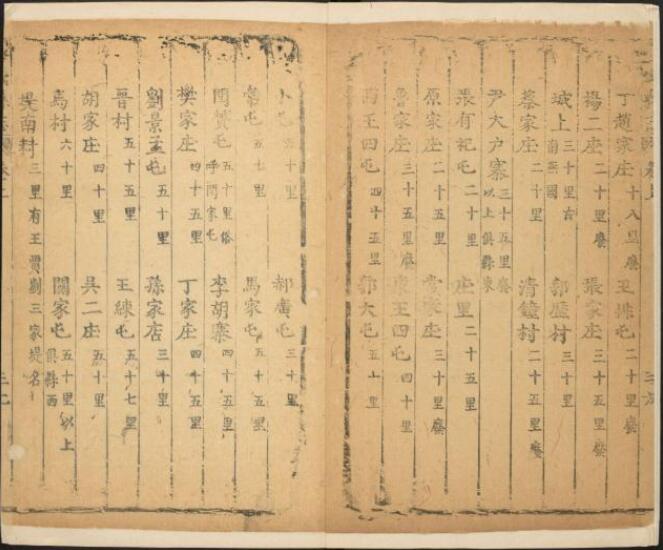 丁趙家庄十八里廢 王 屯二十里廢
楊二庄二十里廢 張家庄二十五里廢
城上三十里古南燕國 郭 村三十里
蔡家庄二十里 清 村二十五里廢
尹大户寨三十五里廢以上俱縣東
張有 屯二十里 庄里二十五里
原家庄二十五里 常家庄三十里廢
魯家庄三十五里廢 王四屯四十里
西王四屯四十五里 郭大屯五十里
小屯 十里 郝廣屯三十里
常屯五十七里 馬家屯五十五里
閆贊屯五十里俗呼閆家屯 李胡寨四十五里
樊家庄四十五里 丁家庄四十五里
劉景 屯五十里 孫家店三十里
晋村五十五里 王練屯五十七里
胡家庄四十里 吳二庄五十里
馬村六十里 關家屯五十里以上俱縣西
南村三里有王賈劉三家堤名